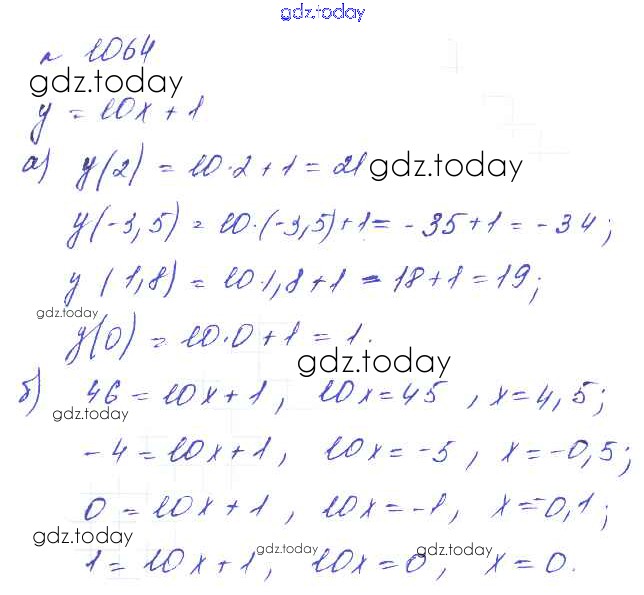 gdz.today
№ 1064
gdz.today
y = 10x + 1
а) y(2) = 10·2 + 1 = 21 gdz.today
y(-3,5) = 10·(-3,5)+1 = -35+1 = -34;
y(1,8) = 10·1,8+1 = 18+1 = 19;
gdz.today
y(0) = 10·0+1 = 1.
gdz.today
б) 46 = 10x+1, 10x=45, x=4,5;
gdz.today
-4 = 10x+1, 10x = -5, x = -0,5;
0 = 10x+1, 10x = -1, x = 0,1;
gdz.today gdz.today gdz.today
1 = 10x+1, 10x = 0, x = 0.